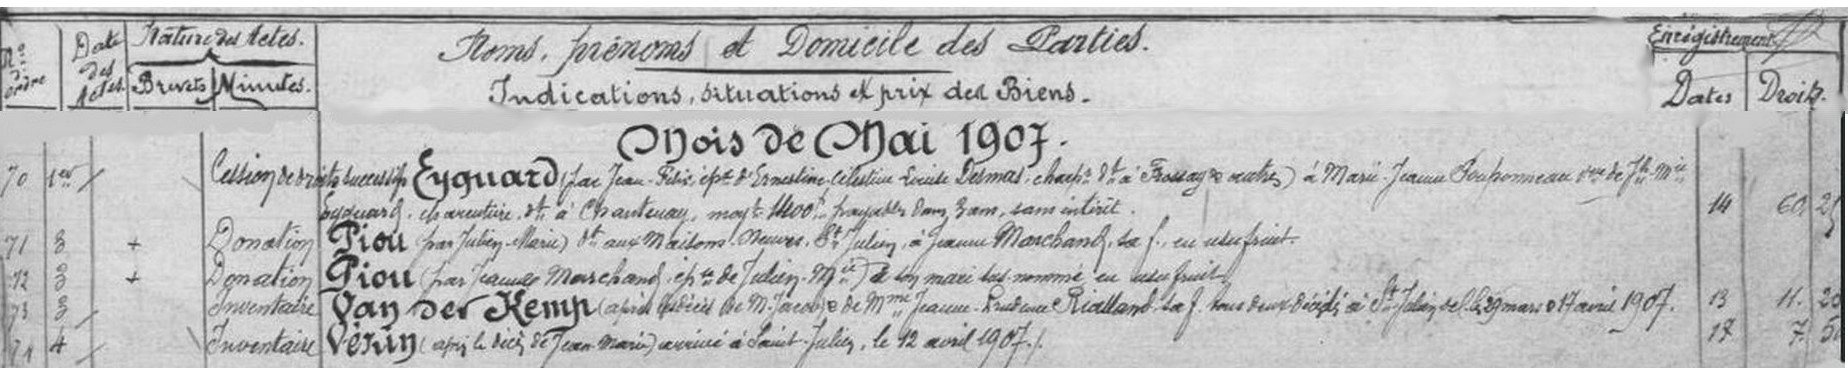 Nos d'ordre Date des Actes. Nature des Actes. Noms, prénoms et Domicile des Parties. Enregistrement
Brevets Minutes. Indications, situations et prix des Biens. Dates Droits.
Mois de Mai 1907.
70 1er Cession de droits successifs Eyquard (par Jean Félix, épx d'Ernestine Célestine Louise Desmas, charpr dt à Frossay & autres) à Marie Jeanne Pouponneau vve de Jh Mie
Eyquard, charcutière, dt à Chantenay, moyt 1400f payables dans 3 ans, sans intérêt. 14 60 25
71 3 + Donation Piou (par Julien Marie) dt aux Maisons Neuves, St Julien, à Jeanne Marchand, sa f. en usufruit.
72 3 + Donation Piou (par Jeanne Marchand, épse de Julien Mie) à son mari sus nommé en usufruit
73 3 Inventaire Van der Kemp (après décès de M. Jacob & de Mme Jeanne Prudence Rialland sa f. tous deux décédés à St Julien de C. les 29 mars & 17 avril 1907. 13 11.
74 4 Inventaire Vérin (après le décès de Jean Marie) arrivé à Saint Julien, le 12 avril 1907. 17 7.